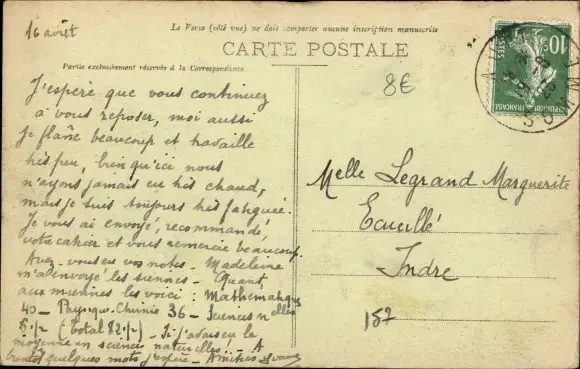 16 août
Le Verso (côté vue) ne doit comporter aucune inscription manuscrite
CARTE POSTALE
Partie exclusivement réservée à la Correspondance
J'espère que vous continuez
à vous reposer, moi aussi
je flâne beaucoup et travaille
très peu, bien qu'ici nous
n'ayons jamais eu très chaud,
mais je suis toujours très fatiguée.
Je vous ai envoyé, recommandé,
votre cahier et vous remercie beaucoup.
Avez-vous eu vos notes - Madeleine
m'a envoyé les siennes - Quant
aux miennes les voici : Mathématiques
40 - Physique-Chimie 36 - Sciences nelles
(Total 82 ) - Si j'avais eu la
moyenne en sciences naturelles ! - A
bientôt quelques mots j'espère - Amitiés Yvonne
8€
Melle Legrand Marguerite
Ecueillé
Indre
187
10c
POSTES
REPUBLIQUE FRANÇAISE